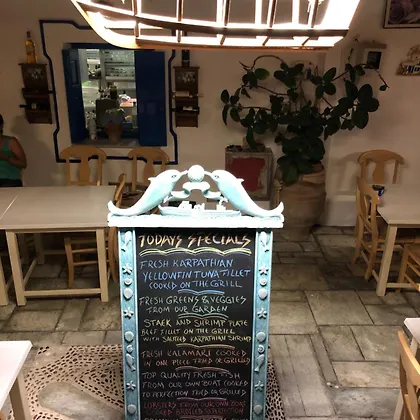 TODAYS SPECIALS
FRESH KARPATHIAN
YELLOWFIN TUNA FILLET
COOKED ON THE GRILL
FRESH GREENS & VEGGIES
FROM OUR GARDEN
STAEK AND SHRIMP PLATE
BEEF FILLET ON THE GRILL
WITH SAUTEED KARPATHIAN SHRIMP
FRESH KALAMARI COOKED
IN ONE PIECE FRIED OR GRILLED
TOP QUALITY FRESH FISH
FROM OUR OWN BOAT COOKED
TO PERFECTION FRIED OR GRILLED
LOBSTERS FROM OUR OWN BOAT